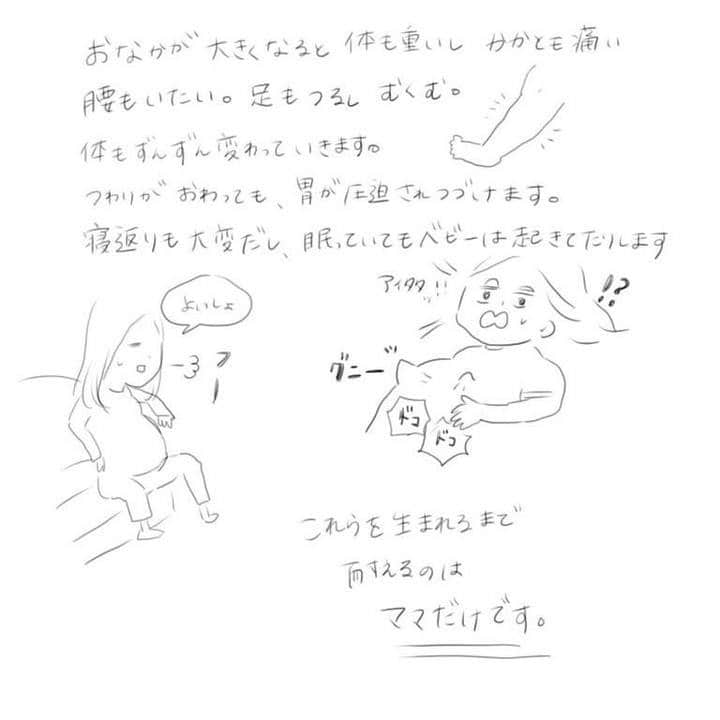 おなかが 大きくなると 体も重いし かかとも痛い
腰もいたい。足もつるし むくむ。
体もずんずん変わっていきます。
つわりが おわっても、胃が圧迫されつづけます。
寝返りも大変だし、眠っていてもベビーは起きてたりします
よいしょ
アイタタ!!
!?
グニー゛
ドコ
ドコ
これらを生まれるまで
耐えるのは
ママだけです。